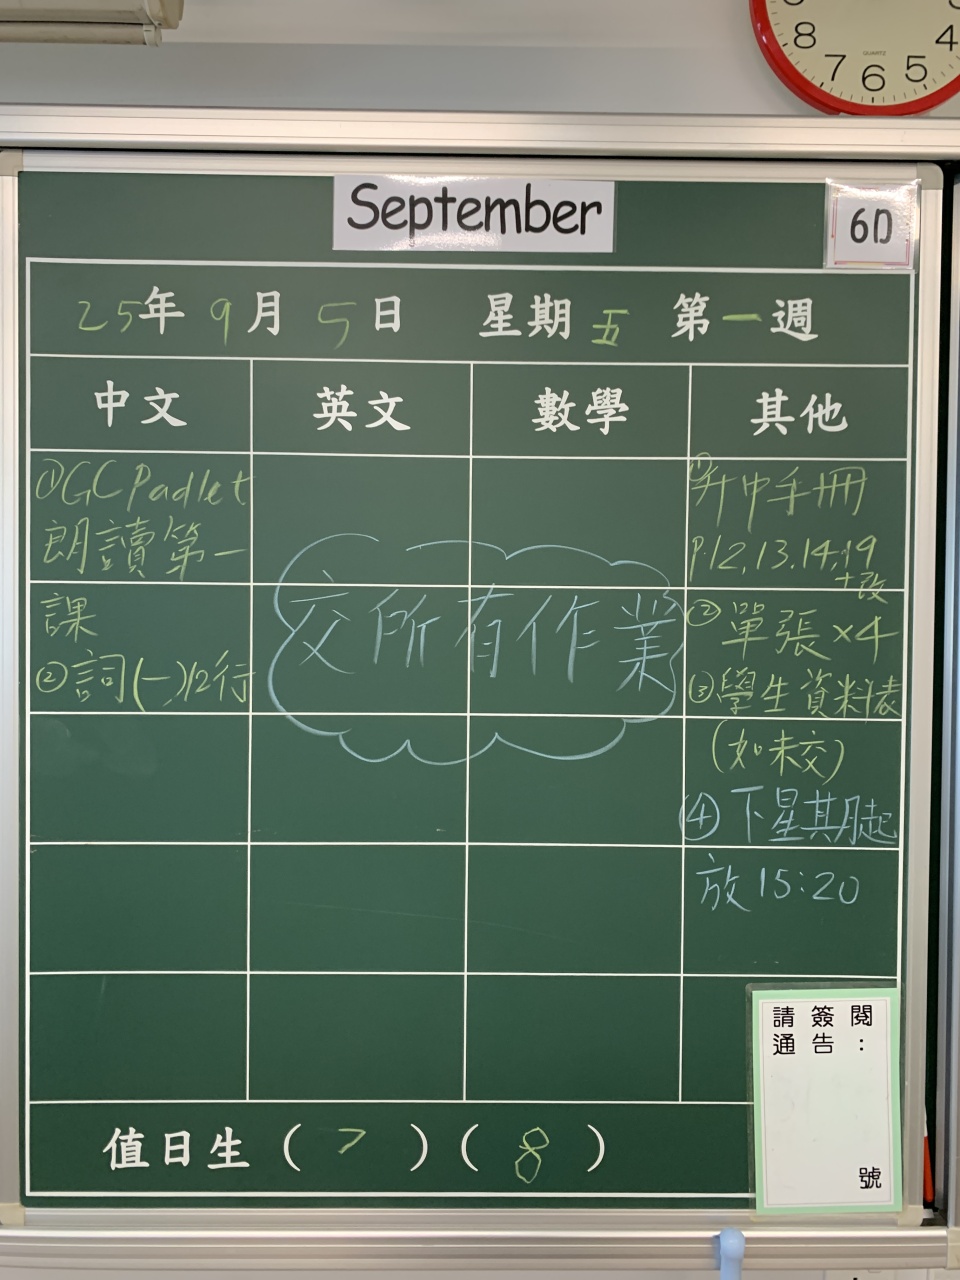 8 7 6 5 4
QUARTZ
September
6D
25年 9月 5日 星期五 第一週
中文 英文 數學 其他
①GC Padlet
朗讀第一
課
②詞(一)12行
交所有作業
①升中手冊
p.12,13,14,19
+改
②單張×4
③學生資料表
(如未交)
④下星期起
放15:20
請簽閱
通告:
號
值日生(7)(8)